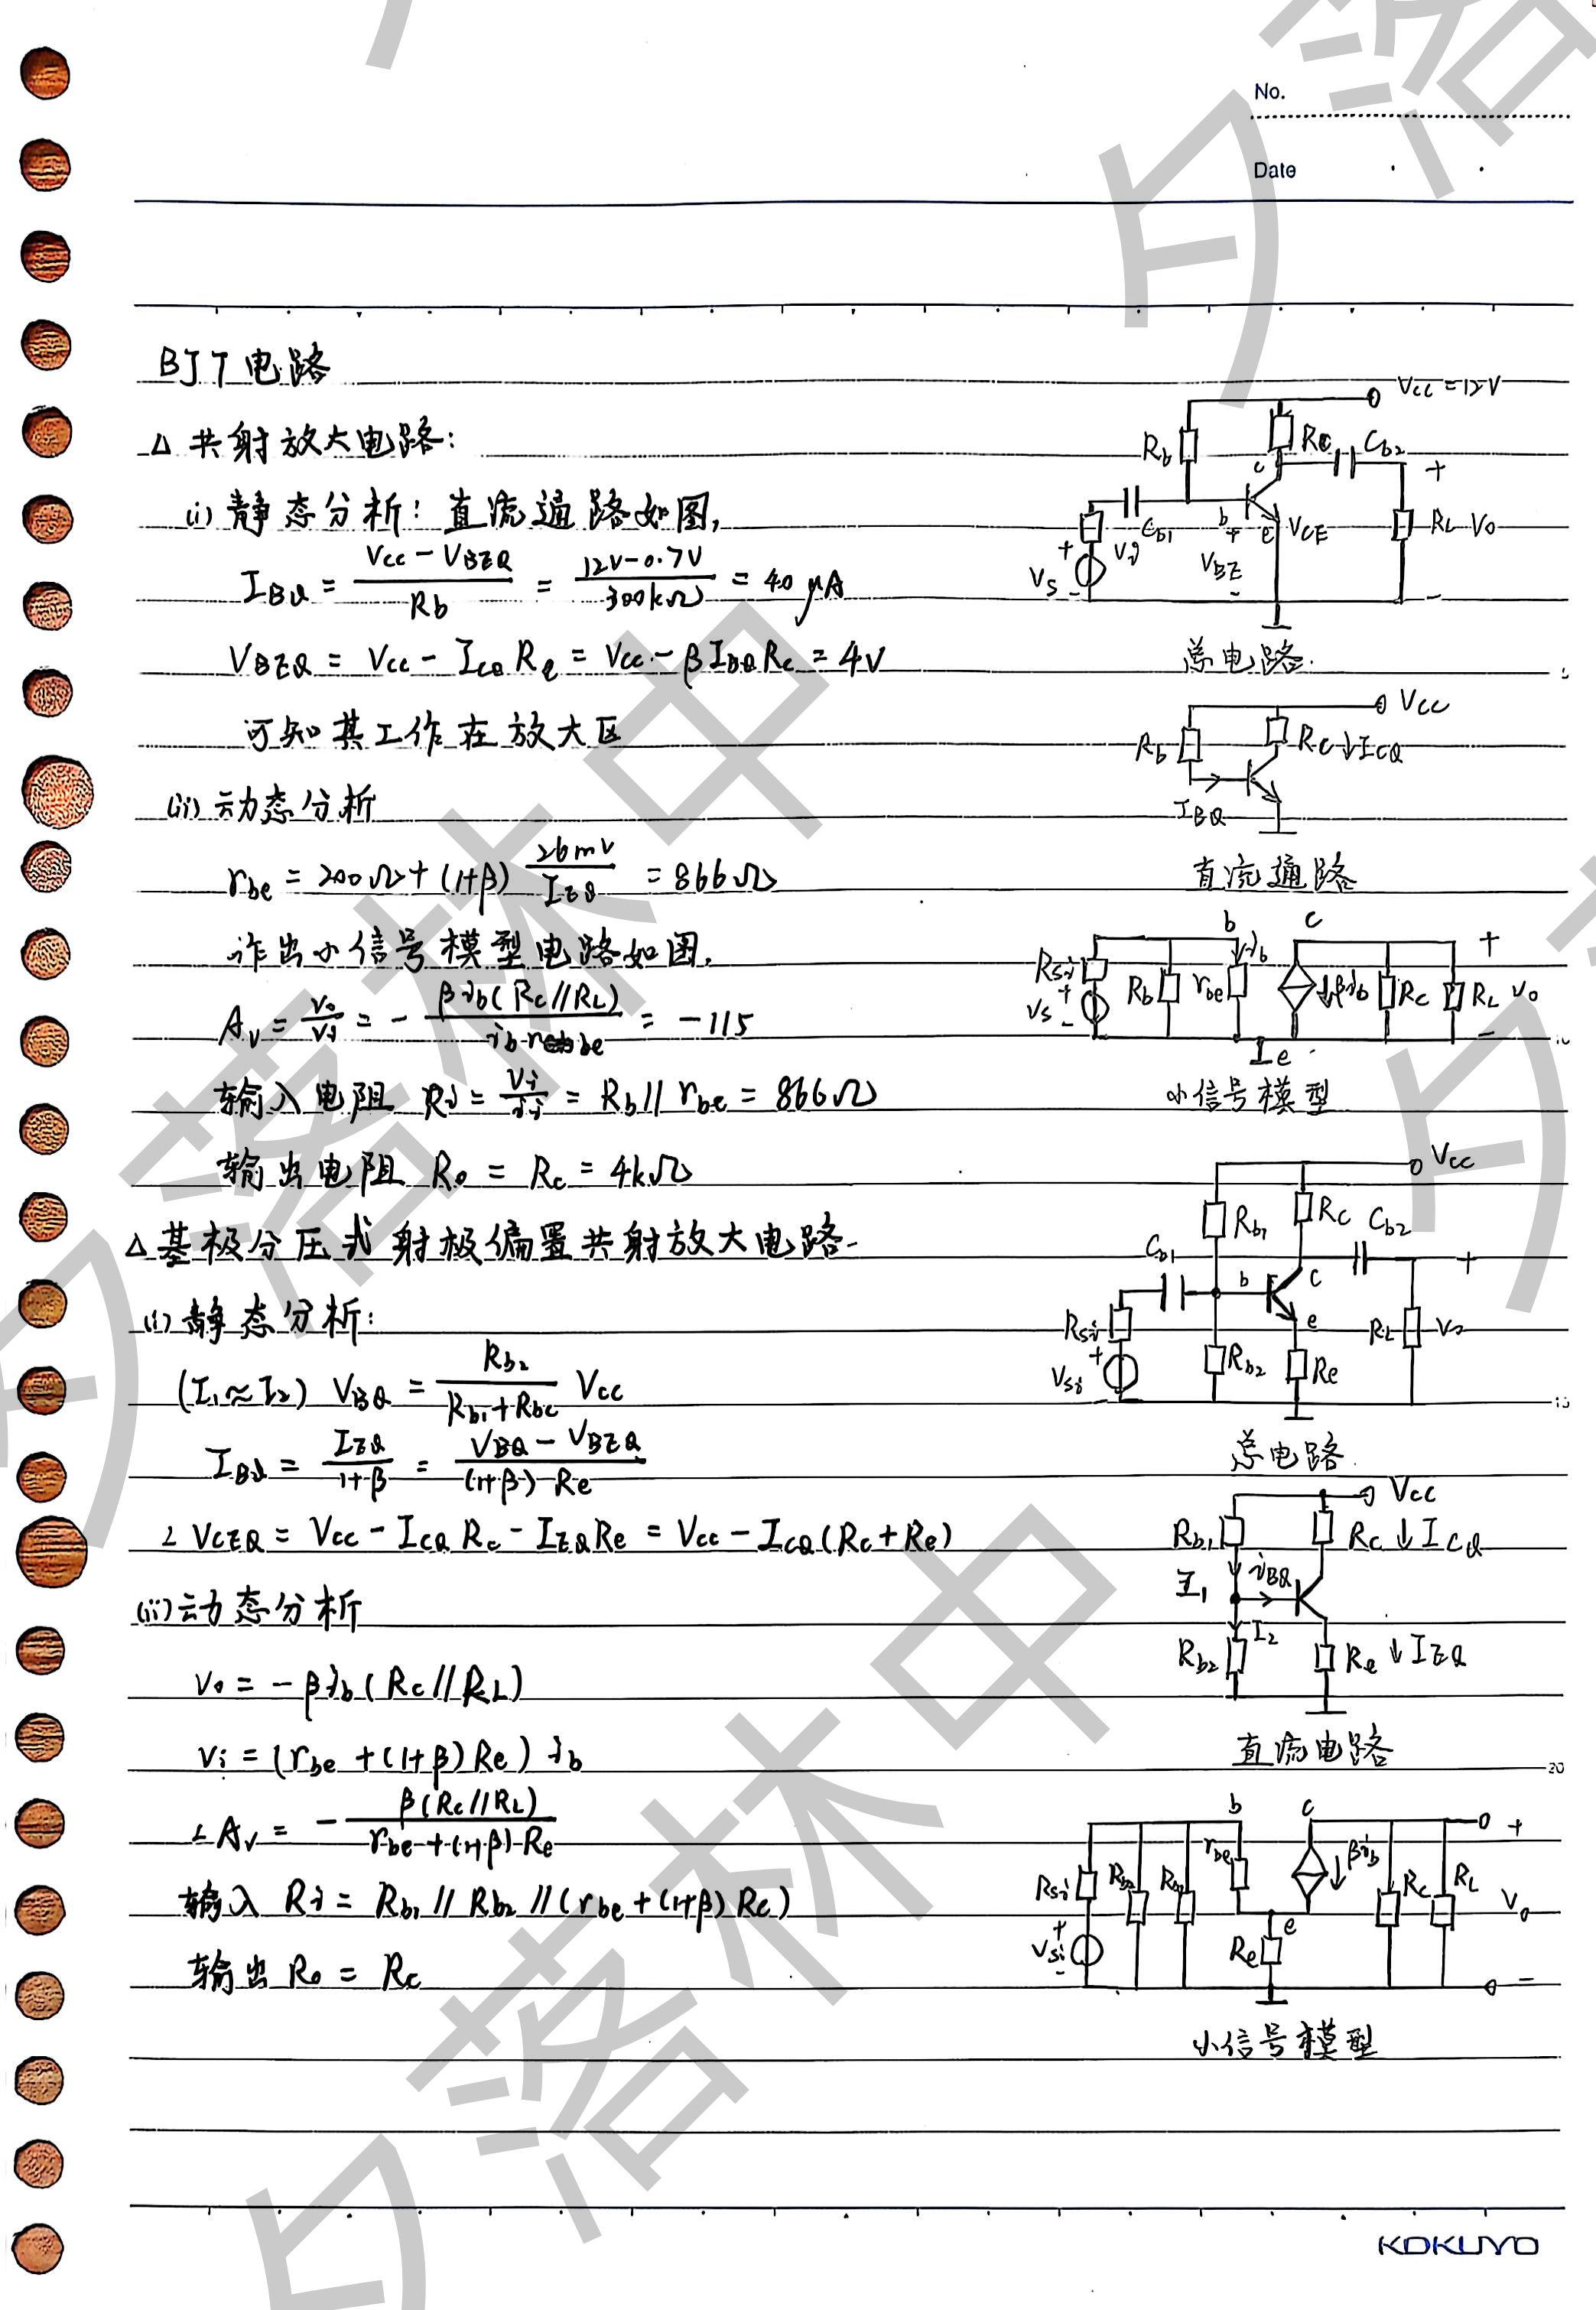 No.
Date
BJT电路
△共射放大电路:
(i)静态分析:直流通路如图,
I_BQ = (Vcc - V_BEQ)/Rb = (12V-0.7V)/300kΩ = 40μA
V_BEQ = Vcc - I_CQ Re = Vcc - βI_BQ Rc = 4V
可知其工作在放大区
(ii)动态分析
r_be = 200Ω + (1+β) 26mV/I_EQ = 866Ω
作出小信号模型电路如图.
A_v = Vo/Vi = - βi_b(Rc//RL)/(i_b·r_be) = -115
输入电阻 Ri = Vi/ii = Rb//r_be = 866Ω
输出电阻 Ro = Rc = 4kΩ
△基极分压式射极偏置共射放大电路
(i)静态分析:
(I1≈I2) V_BQ = Rb2/(Rb1+Rb2) Vcc
I_BQ = I_EQ/(1+β) = (V_BQ - V_BEQ)/((1+β)·Re)
∴ V_CEQ = Vcc - I_CQ Rc - I_EQ Re = Vcc - I_CQ(Rc+Re)
(ii)动态分析
Vo = -βi_b(Rc//RL)
Vi = (r_be + (1+β)Re) i_b
∴ A_v = - β(Rc//RL)/(r_be + (1+β)Re)
输入 Ri = Rb1//Rb2//(r_be + (1+β)Rc)
输出 Ro = Rc
Vcc=12V
Rb
Rc
Cb2
+
c
Cb1
b
+
e
VCE
RL
Vo
+
Vi
Vs
-
VBE
-
-
总电路.
Vcc
Rb
Rc↓I_CQ
I_BQ
直流通路
b
c
+
Rsi
Vs
+
-
Rb
r_be
i_b
↓βi_b
Rc
RL
Vo
-
e
小信号模型
Vcc
Rb1
Rc
Cb2
Cb1
b
c
+
e
Rsi
RL
Vo
+
Vsi
Rb2
Re
总电路.
Vcc
Rb1
Rc↓I_CQ
I1
i_BQ
I2
Rb2
Re↓I_EQ
直流电路
b
c
+
r_be
↓βi_b
Rsi
Rc
RL
Vo
+
Vsi
-
e
Re
-
小信号模型
10
15
20
KOKUYO
夕落林中
夕落林中
夕落
夕